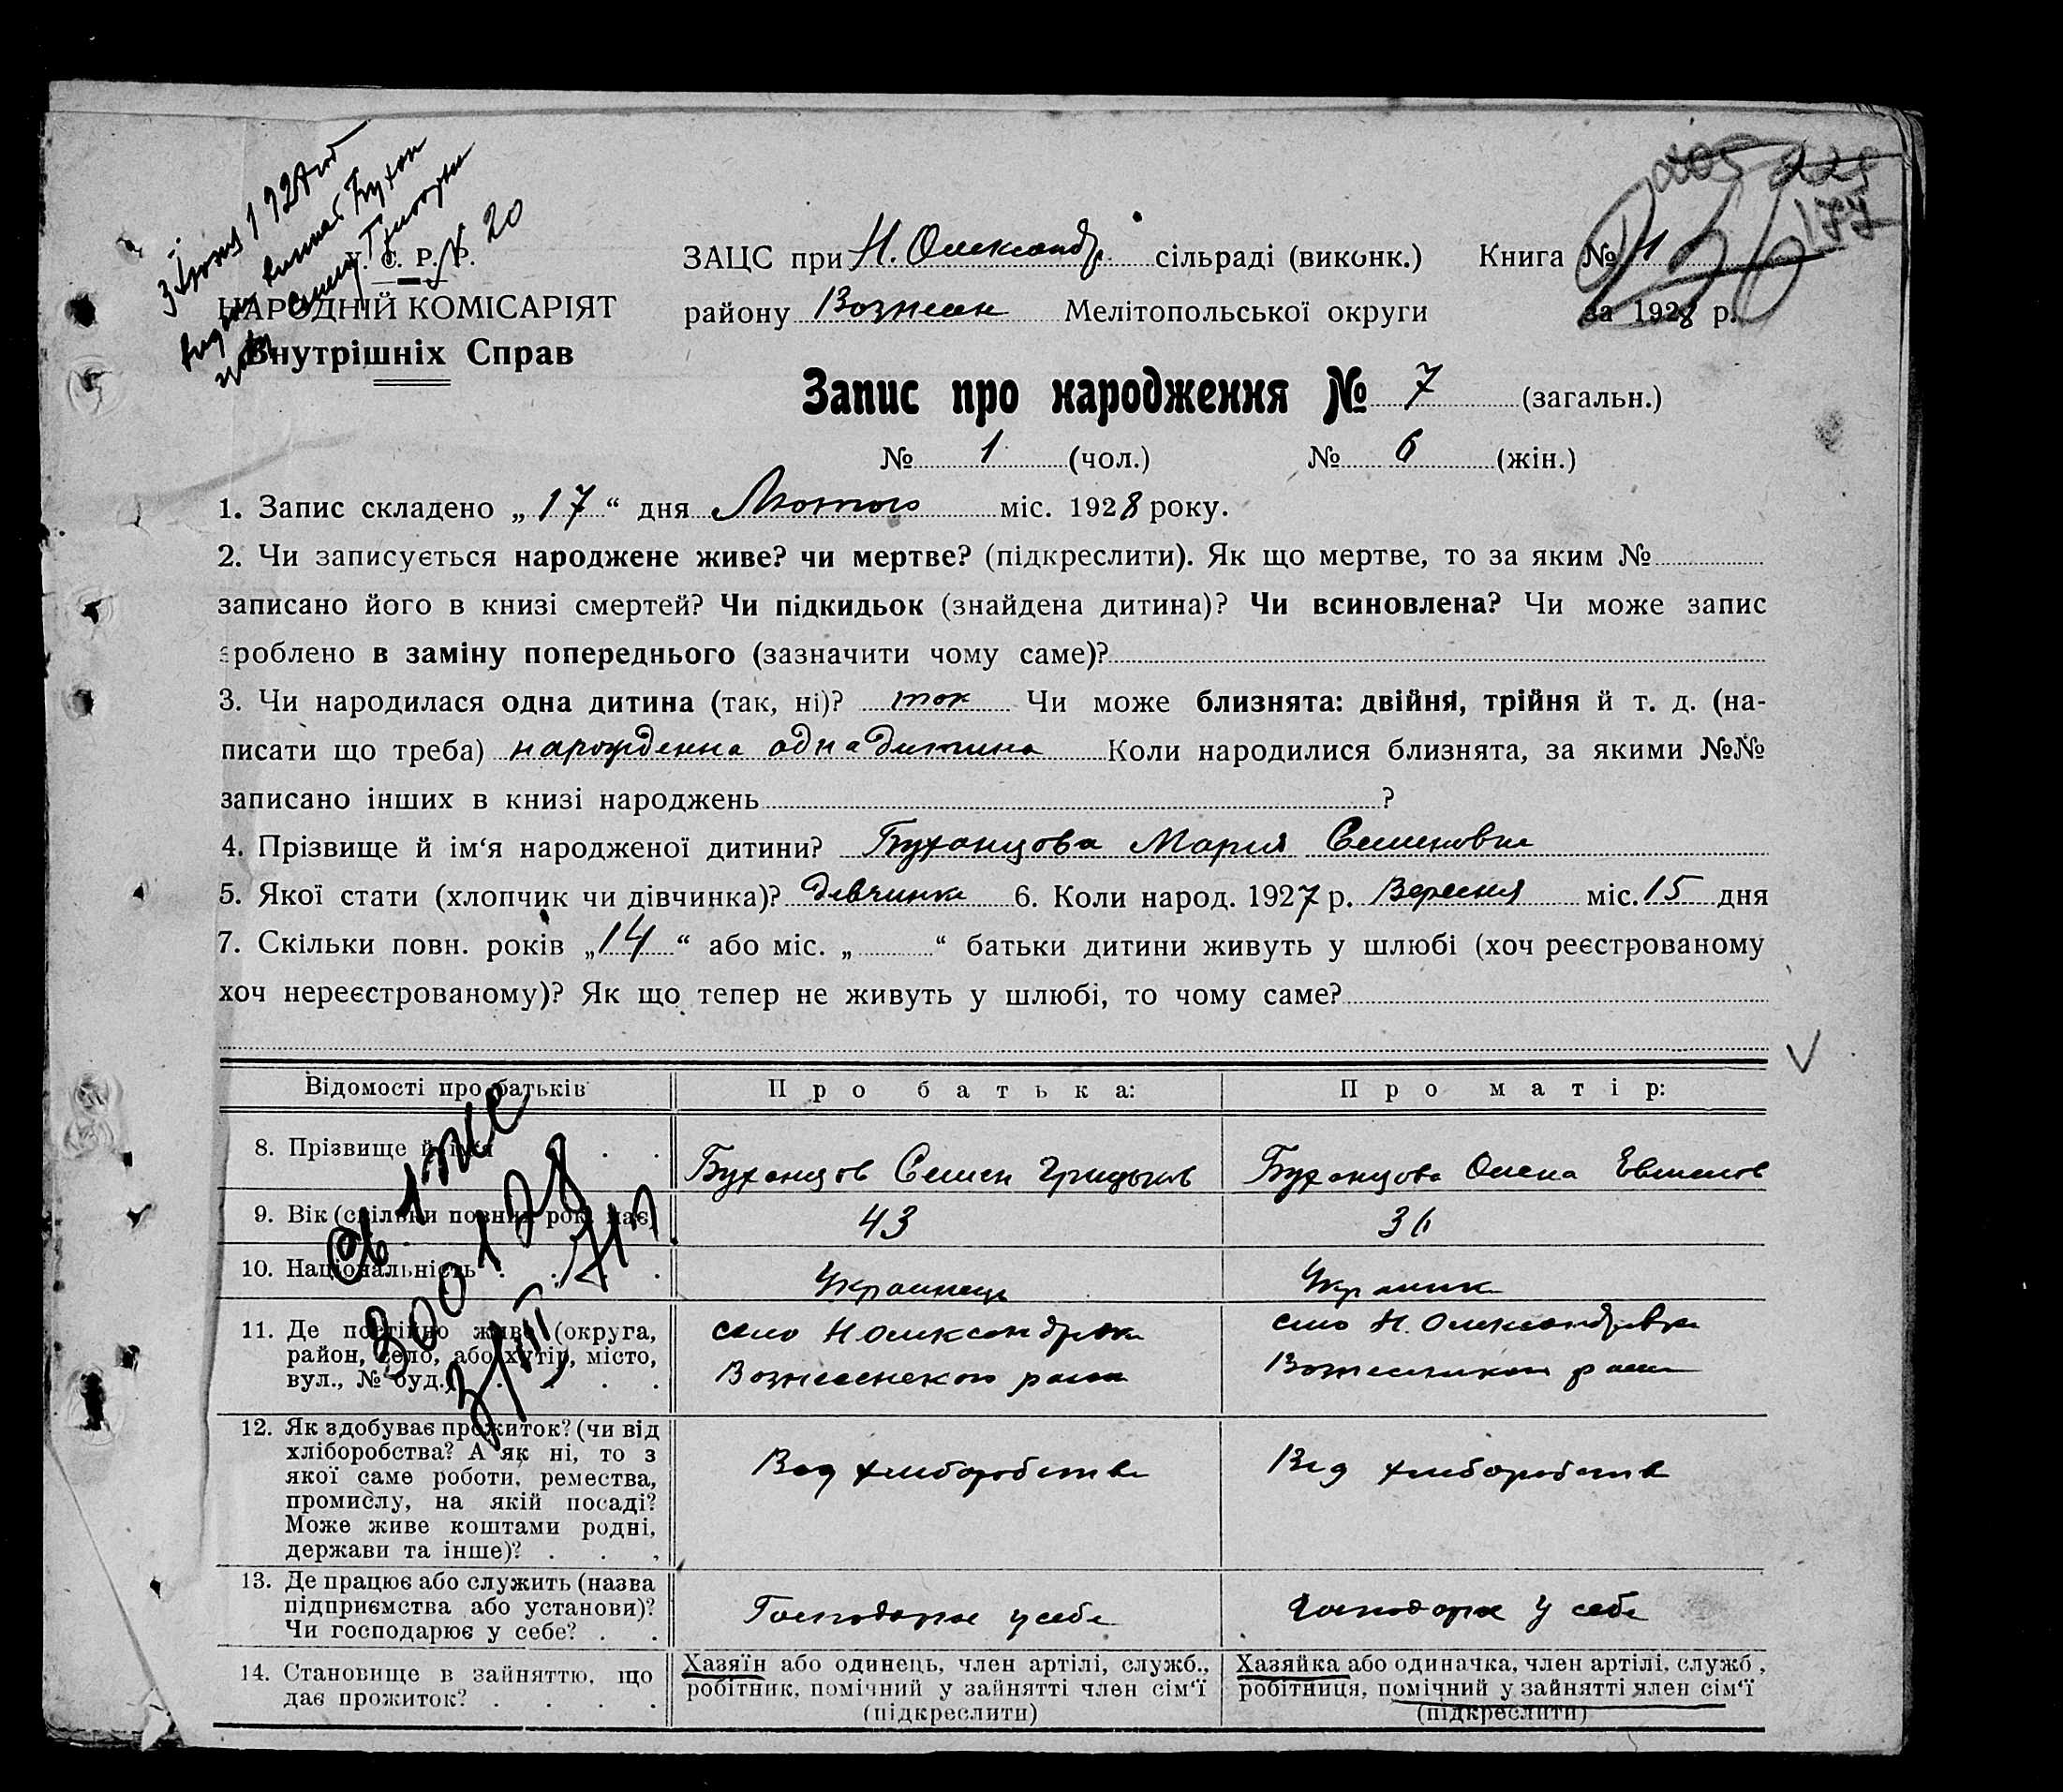 У. С. Р. Р.
НАРОДНІЙ КОМІСАРІЯТ
Внутрішніх Справ
ЗАЦС при Н. Олександр. сільраді (виконк.) Книга № 1
району Вознесен Мелітопольської округи за 1928 р.
Запис про народження № 7 (загальн.)
№ 1 (чол.) № 6 (жін.)
1. Запис складено „17“ дня Лютого міс. 1928 року.
2. Чи записується народжене живе? чи мертве? (підкреслити). Як що мертве, то за яким №
записано його в книзі смертей? Чи підкидьок (знайдена дитина)? Чи всиновлена? Чи може запис
зроблено в заміну попереднього (зазначити чому саме)?
3. Чи народилася одна дитина (так, ні)? так Чи може близнята: двійня, трійня й т. д. (на-
писати що треба) народженна одна дитина Коли народилися близнята, за якими №№
записано інших в книзі народжень ?
4. Прізвище й ім‘я народженої дитини? Буханцова Мария Семеновна
5. Якої стати (хлопчик чи дівчинка)? дівчинка 6. Коли народ. 1927 р. Вересня міс. 15 дня
7. Скільки повн. років „14“ або міс. „ “ батьки дитини живуть у шлюбі (хоч реєстрованому
хоч нереєстрованому)? Як що тепер не живуть у шлюбі, то чому саме?
Відомості про батьків Про батька: Про матір:
8. Прізвище й ім‘я . . Буханцов Семен Грицьков Буханцова Олена
9. Вік (скільки повних рок. має) 43
10. Національність . . . Украинець Украинка
11. Де постійно живе (округа, село Н. Олександровка село Н. Олександровка
район, село, або хутір, місто, Вознесенского района Вознесенского района
вул., № буд.) . . . .
12. Як здобуває прожиток? (чи від
хліборобства? А як ні, то з Від хлиборобства Від хлиборобства
якої саме роботи, ремества,
промислу, на якій посаді?
Може живе коштами родні,
держави та інше)? . . .
13. Де працює або служить (назва
підприємства або установи)? Господарює у себе Господарює у себе
Чи господарює у себе? . .
14. Становище в зайняттю, що Хазяїн або одинець, член артілі, служб., Хазяйка або одиначка, член артілі, служб.,
дає прожиток? . . . . робітник, помічний у зайнятті член сім‘ї робітниця, помічний у зайнятті член сім‘ї
(підкреслити) (підкреслити)